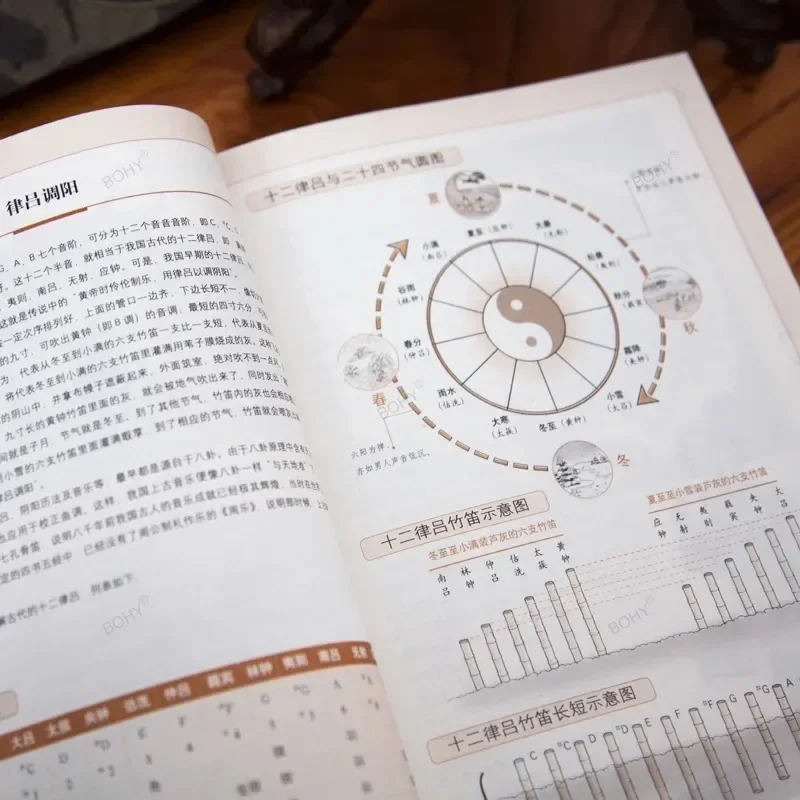 律吕调阳
G、A、B七个音阶，可分为十二个音音音阶，即C、#C、
这十二个半音，就相当于我国古代的十二律吕，即
夷则、南吕、无射、应钟。可是，我国早期的十二律吕
这就是传说中的“黄帝时伶伦制乐，用律吕以调阴阳”。
一定次序排列好，上面的管口一边齐，下边长短不一，像
的九寸，可吹出黄钟（即B调）的音调，最短的四寸六分，
为，代表从冬至到小满的六支竹笛一支比一支短，代表从夏至
将代表冬至到小满的六支竹笛里灌满用苇子膜烧成的灰，
的阴山中，并拿布幔子遮蔽起来，外面筑室，绝对吹不到一点风
九寸长的黄钟竹笛里面的灰，就会被地气吹出来了，同时发出
间就是子月，节气就是冬至，到了其他节气，竹笛内的灰也会相应
小雪的六支竹笛里面灌满葭莩，到了相应的节气，竹笛就会喷灰
吕调阳”。
吕、阴阳历法及音乐等，最早都是源自于八卦。由于八卦原理中含有
也应用于校正鱼调，这样，我国上古音乐便像八卦一样“与天地准”
七孔骨笛，说明八千年前我国古人的音乐成就已经极其辉煌，当时在
定的四书五经中，已经没有了周公制礼作乐的《周乐》，说明那时候，
解古代的十二律吕，列表如下
大吕 太簇 夹钟 姑洗 仲吕 蕤宾 林钟 夷则 南吕 无射
#C D #D E F #F G #G A
十二律吕与二十四节气圆图
夏
夏至
大暑
处暑
秋分
秋
霜降
小雪
冬至（黄钟）
冬
大寒
（太簇）
雨水
（姑洗）
春分
（仲吕）
春
谷雨
（林钟）
小满
（南吕）
六阳为律，
亦如男人声音低沉。
十二律吕竹笛示意图
冬至至小满装芦灰的六支竹笛
南吕 林钟 仲吕 姑洗 太簇 黄钟
夏至至小雪装芦灰的六支竹笛
应钟 无射 夷则 蕤宾 夹钟 大吕
十二律吕竹笛长短示意图
C #C D #D E F #F G #G A
BOHY®
BOHY®
BOHY®
BOHY®
BOHY®
BOHY